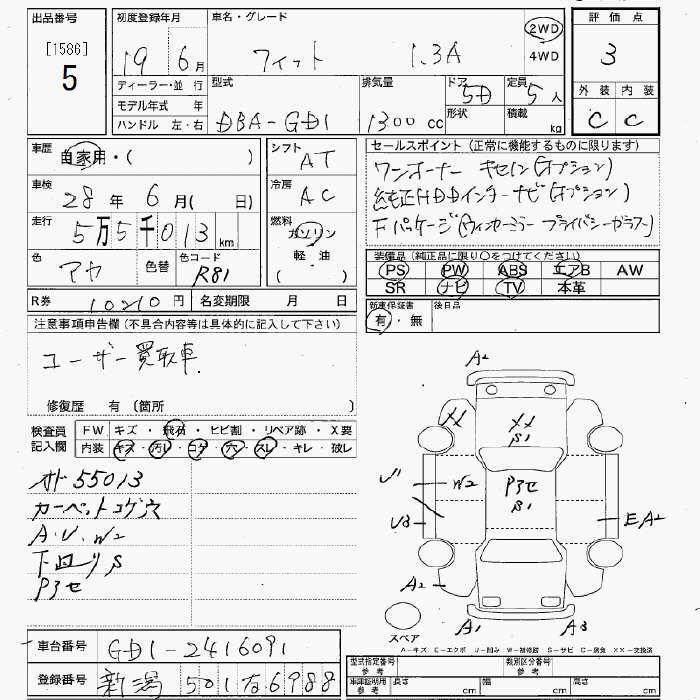 出品番号 初度登録年月 車名・グレード 評価点
[1586]
5
19 6月 フィット 1.3A 2WD 4WD 3
ディーラー・並行 型式 排気量 ドア 定員 外装 内装
モデル年式 年 5D 5人
ハンドル 左・右 DBA-GD1 1300cc 形状 積載 kg C C
車歴 自家用・( ) シフト AT セールスポイント(正常に機能するものに限ります)
ワンオーナー キセノン(オプション)
車検 28年 6月( 日) 冷房 AC 純正HDDインターナビ(オプション)
走行 5万5千013km 燃料 ガソリン Fパッケージ(ウィンカーミラー プライバシーガラス)
軽油
( )
色 アヤ 色替 色コード R81 装備品(純正品に限り○をつけてください)
PS PW ABS エアB AW
SR ナビ TV 本革
R券 10210円 名変期限 月 日 新車保証書 後日品
有・無
注意事項申告欄(不具合内容等は具体的に記入して下さい)
ユーザー買取車
修復歴 有 (箇所 )
検査員記入欄 FW キズ・飛石・ヒビ割・リペア跡・X要
内装 キズ・汚レ・コゲ・穴・スレ・キレ・破レ
オド55013
カーペットコゲ穴
A.U.W2
下回りS
Pアセ
A2
XX
XX
S1
U1
W2
Pアセ
S1
U3
EA2
A2
スペア A1 A3
A-キズ E-エクボ U-凹み W-補修跡 S-サビ C-腐食 XX-交換済
車台番号 GD1-2416091
型式指定番号 参考 類別区分番号 参考
登録番号 新潟 501 な 6988
車庫証明用 参考 長さ cm 幅 cm 高さ cm